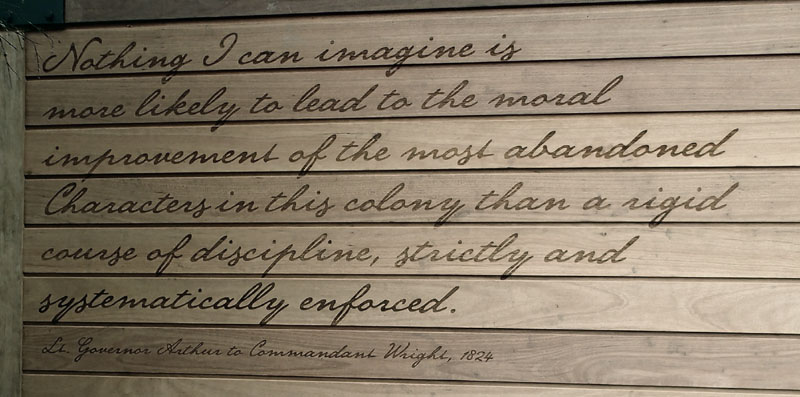 Nothing I can imagine is
more likely to lead to the moral
improvement of the most abandoned
Characters in this colony than a rigid
course of discipline, strictly and
systematically enforced.
Lt. Governor Arthur to Commandant Wright, 1824